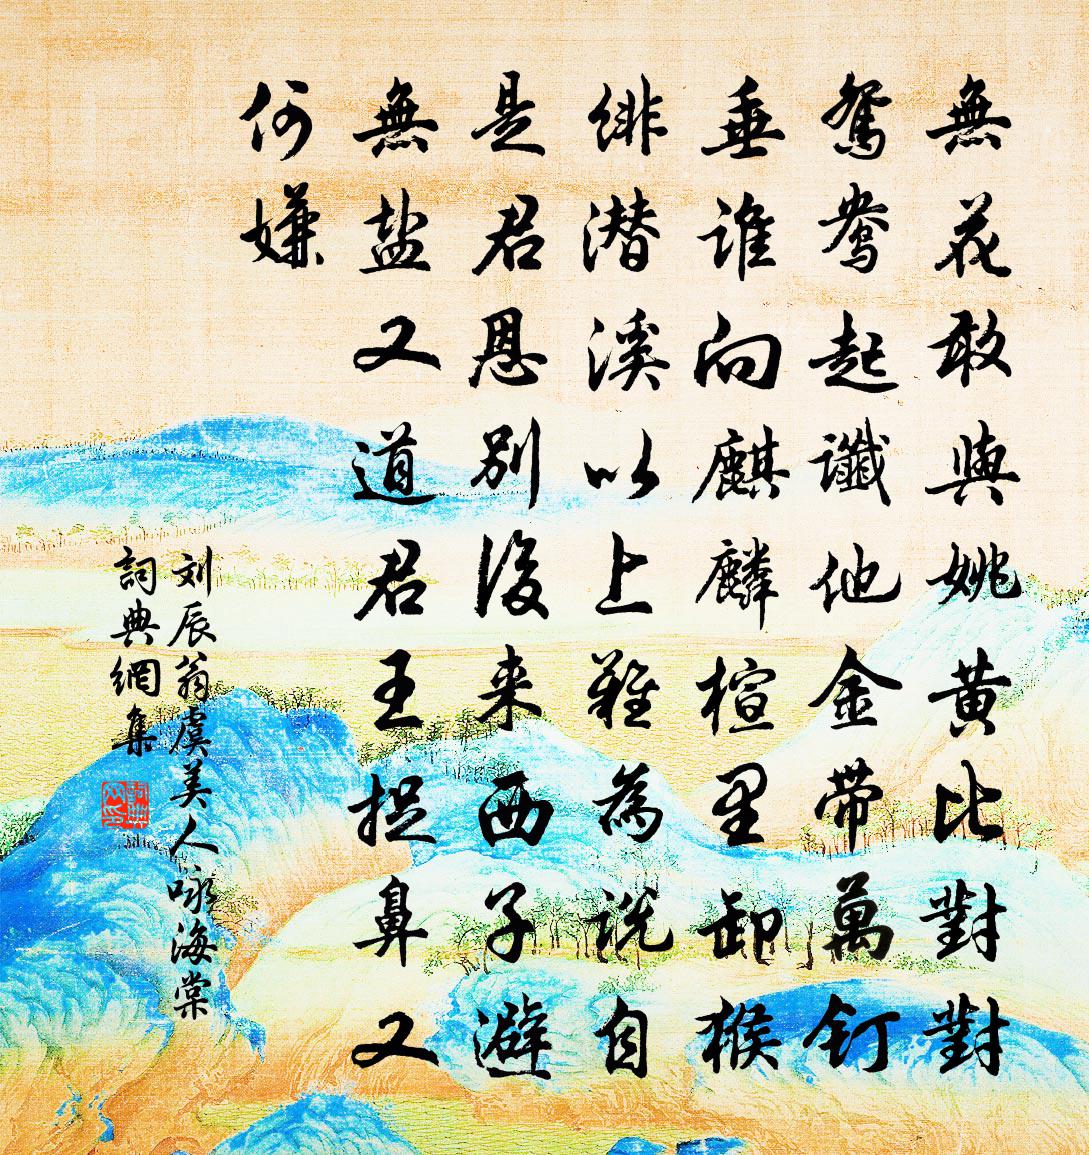 無花敢與姚黄比對對
鴛鴦起讖他金带萬釘
垂誰向麒麟楦里卸猴
緋潜溪以上難為说自
是君恩别後来西子避
無盐又道君王捉鼻又
何嫌
刘辰翁虞美人咏海棠
詞典網集